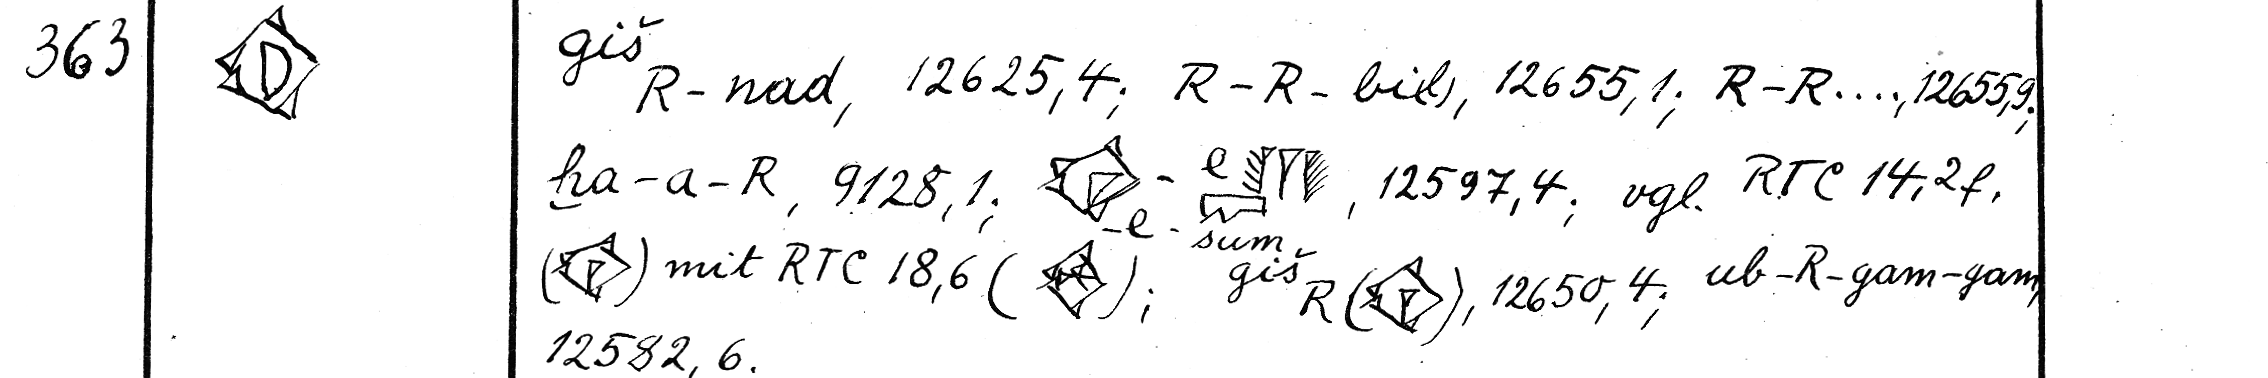 363 giš R-nad, 12625,4; R-R-bi(l), 12655,1; R-R...., 12655,9;
ḫa-a-R, 9128,1; -e , 12597,4; vgl. RTC 14,2f.
-e-sum
( ) mit RTC 18,6 ( ); giš R ( ), 12650,4; ub-R-gam-gam,
12582, 6.